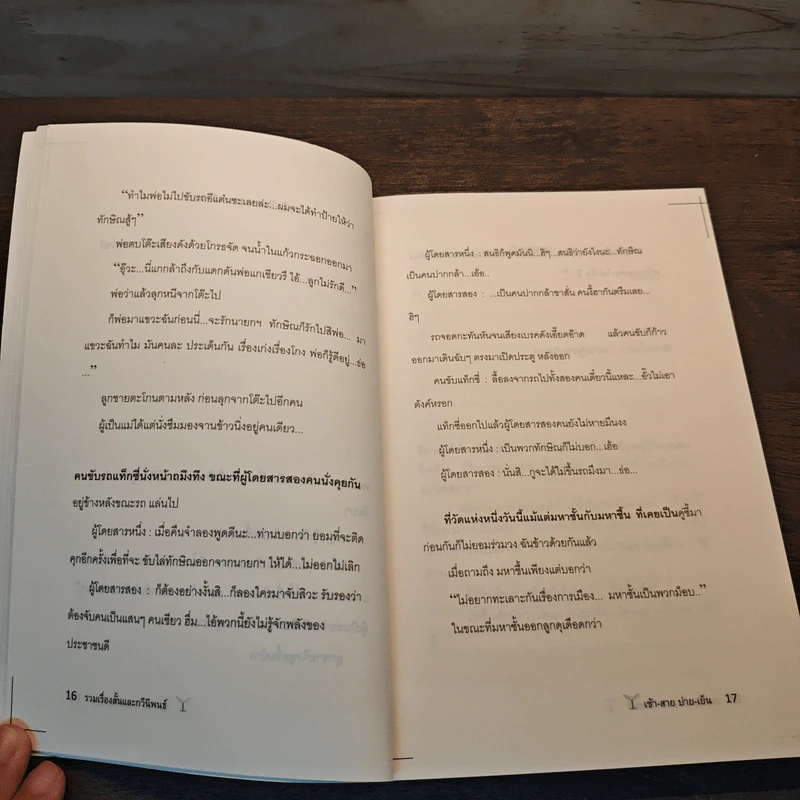 “ทำไมพ่อไม่ไปขับรถอีแต๋นซะเลยล่ะ...ผมจะได้ทำป้ายให้ว่า
ทักษิณสู้ๆ”
พ่อตบโต๊ะเสียงดังด้วยโกรธจัด จนน้ำในแก้วกระฉอกออกมา
“อุ๊วะ...นี่แกกล้าถึงกับแดกดันพ่อแกเชียวรึ ไอ้...ลูกไม่รักดี...”
พ่อว่าแล้วลุกหนีจากโต๊ะไป
ก็พ่อมาแขวะฉันก่อนนี่...จะรักนายกฯ ทักษิณก็รักไปสิพ่อ... มา
แขวะฉันทำไม มันคนละ ประเด็นกัน เรื่องเก่งเรื่องโกง พ่อก็รู้ดีอยู่...ฮ่อ
...”
ลูกชายตะโกนตามหลัง ก่อนลุกจากโต๊ะไปอีกคน
ผู้เป็นแม่ได้แต่นั่งซึมมองจานข้าวนิ่งอยู่คนเดียว...
คนขับรถแท็กซี่นั่งหน้าถมึงทึง ขณะที่ผู้โดยสารสองคนนั่งคุยกัน
อยู่ข้างหลังขณะรถ แล่นไป
ผู้โดยสารหนึ่ง : เมื่อคืนจำลองพูดดีนะ...ท่านบอกว่า ยอมที่จะติด
คุกอีกครั้งเพื่อที่จะ ขับไล่ทักษิณออกจากนายกฯ ให้ได้...ไม่ออกไม่เลิก
ผู้โดยสารสอง : ก็ต้องอย่างงั้นสิ...ก็ลองใครมาจับสิวะ รับรองว่า
ต้องจับคนเป็นแสนๆ คนเชียว ฮึ่ม...ไอ้พวกนี้ยังไม่รู้จักพลังของ
ประชาชนดี
16 รวมเรื่องสั้นและกวีนิพนธ์
ผู้โดยสารหนึ่ง : สนธิก็พูดมันนิ...ฮิๆ...สนธิว่ายังไงนะ...ทักษิณ
เป็นคนปากกล้า...เฮ้อ..
ผู้โดยสารสอง : ...เป็นคนปากกล้าขาสั่น คนงี้ฮากันตรึมเลย...
ฮิๆ
รถจอดกะทันหันจนเสียงเบรคดังเอี๊ยดอ๊าด แล้วคนขับก็ก้าว
ออกมาเดินฉับๆ ตรงมาเปิดประตู หลังออก
คนขับแท็กซี่ : ลื้อลงจากรถไปทั้งสองคนเดี๋ยวนี้แหละ...อั๊วไม่เอา
ตังค์หรอก
แท็กซี่ออกไปแล้วผู้โดยสารสองคนยังไม่หายมึนงง
ผู้โดยสารหนึ่ง : เป็นพวกทักษิณก็ไม่บอก...เฮ้อ
ผู้โดยสารสอง : นั่นสิ...กูจะได้ไม่ขึ้นรถมึงมา...ฮ่อ...
ที่วัดแห่งหนึ่งวันนี้แม้แต่มหาชั้นกับมหาชื้น ที่เคยเป็นคู่ซี้มา
ก่อนกันก็ไม่ยอมร่วมวง ฉันข้าวด้วยกันแล้ว
เมื่อถามถึง มหาชื้นเพียงแต่บอกว่า
“ไม่อยากทะเลาะกันเรื่องการเมือง... มหาชั้นเป็นพวกม็อบ..”
ในขณะที่มหาชั้นออกลูกดุเดือดกว่า
เช้า-สาย บ่าย-เย็น 17